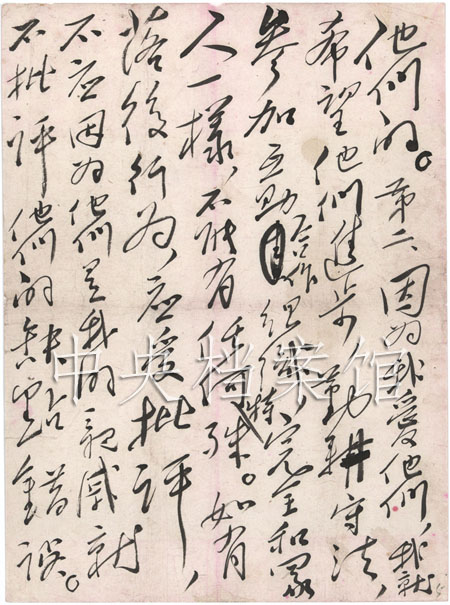 他們的。第二、因为我愛他們,我就
希望他們進步,勤耕守法,
參加互助合作組織,完全和眾
人一樣,不能有任何特殊。如有
落後行为,应受批評,
不应因为他們是我的親戚就
不批評他們的缺點錯誤。
中央档案馆